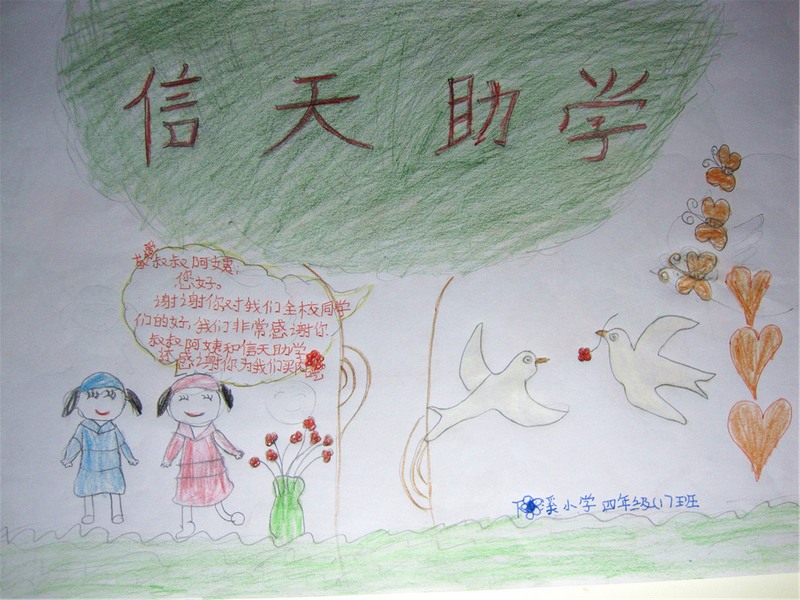 信天助学
敬爱叔叔阿姨,
您好。
谢谢你对我们全校同学
们的好,我们非常感谢你
叔叔阿姨和信天助学
还感谢你为我们买
溪小学 四年级(1)班